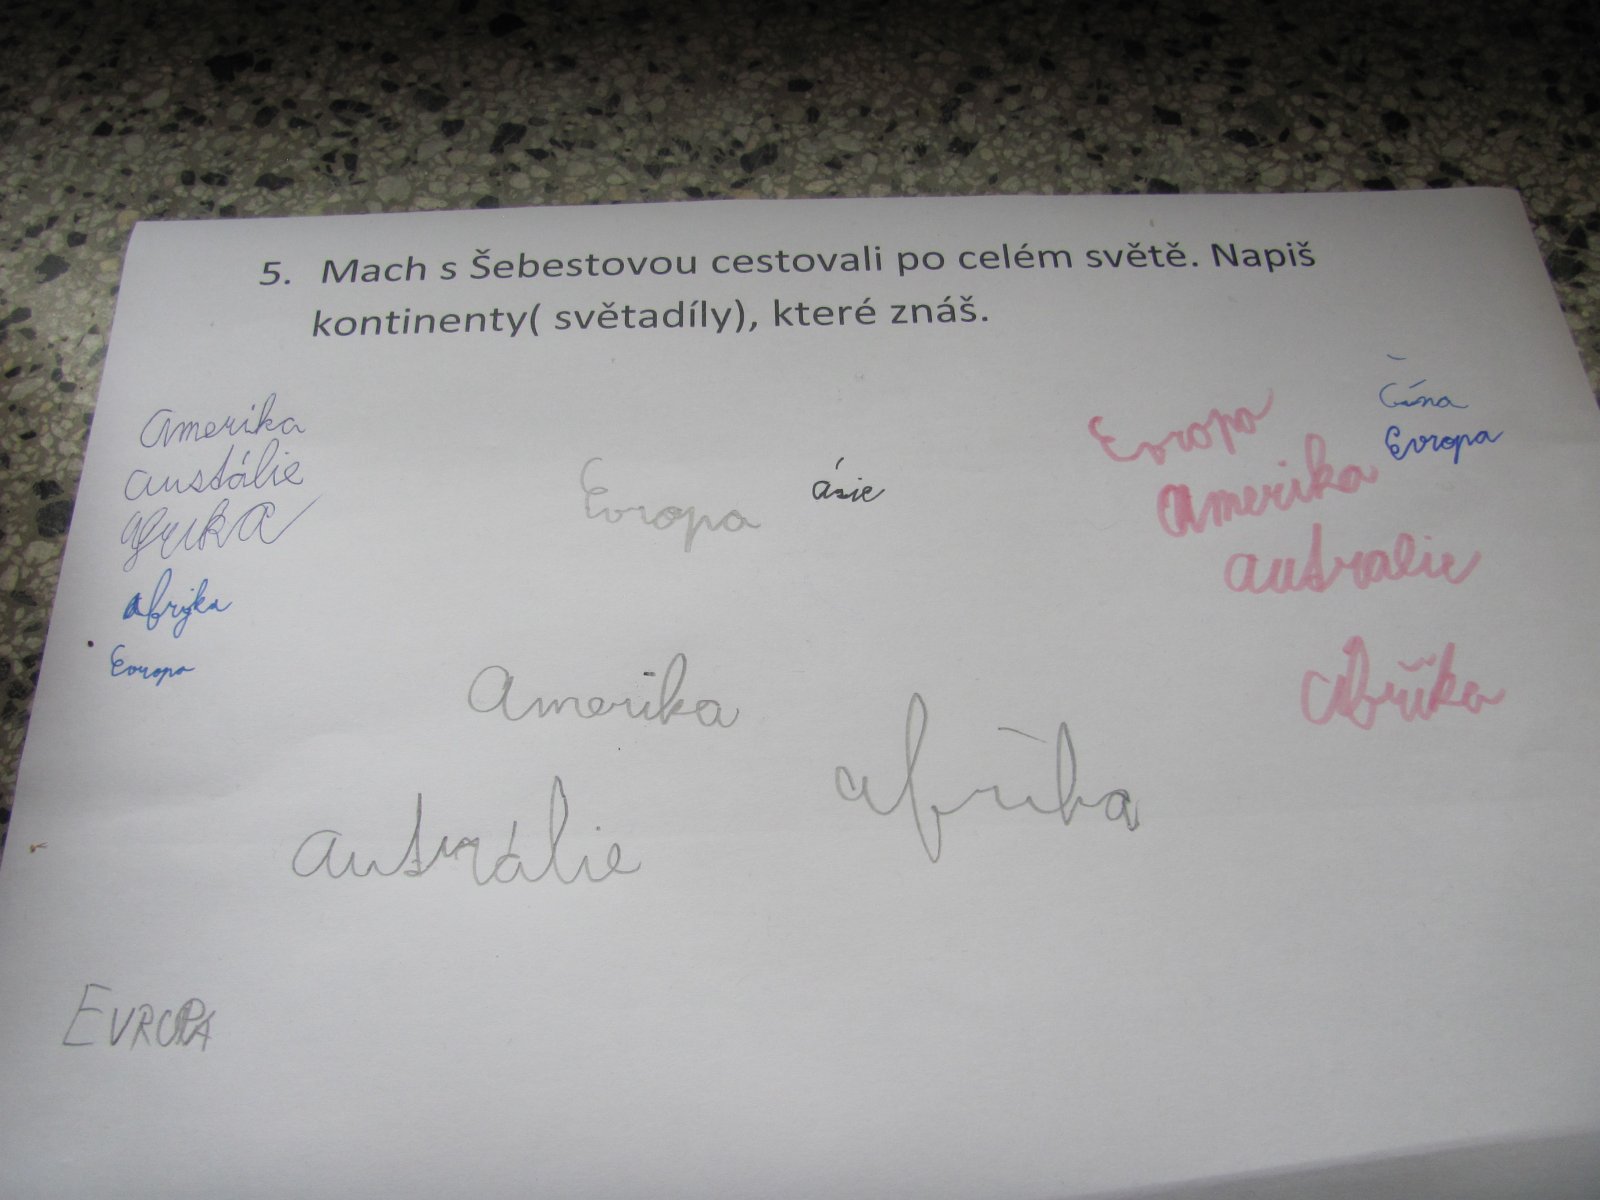 5. Mach s Šebestovou cestovali po celém světě. Napiš
kontinenty( světadíly), které znáš.
Amerika
Austálie
afrika
Evropa
Evropa
Ásie
Amerika
Austrálie
afrika
EVROPA
Čína
Evropa
Evropa
Amerika
Australie
Afrika